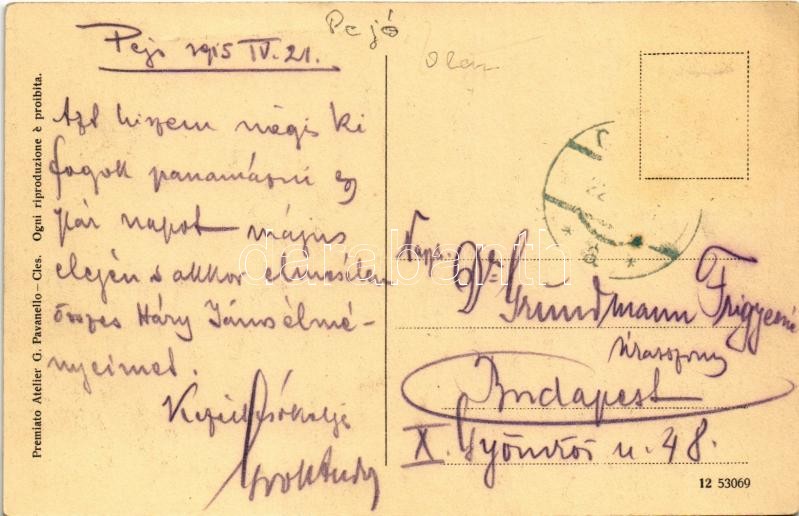 Pejó
olasz
Pejo 1915 IV. 21.
Azt hiszem mégis ki
fogok panamázni egy
pár napot május
elején s akkor elmesélem
összes Háry János élmé-
nyeimet.
Kezeit csókolja
Nagys.
Dr Grundmann Frigyesné
úrasszony
Budapest
X. Gyömrői u. 48.
Premiato Atelier G. Pavanello – Cles. Ogni riproduzione è proibita.
12 53069
darabanth